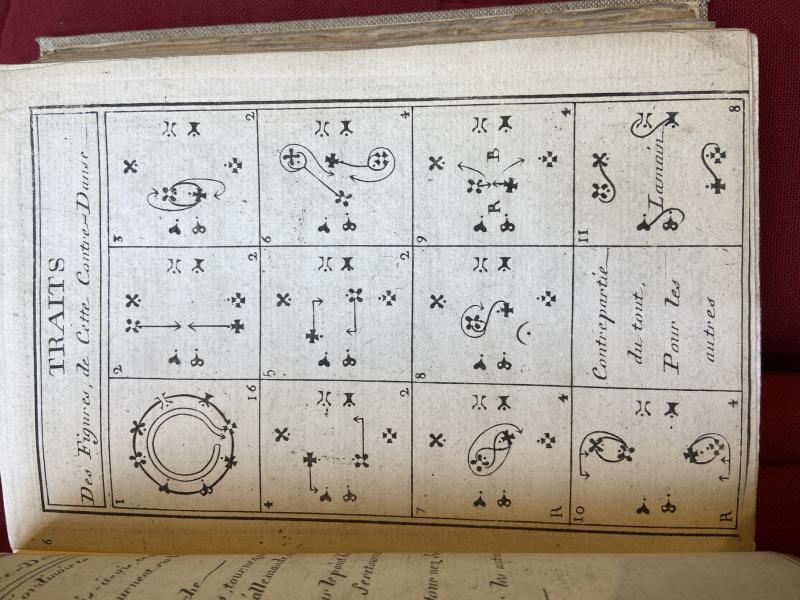 6
TRAITS
Des Figures, de Cette Contre-Danse
1
16
2
2
3
2
4
2
5
2
6
4
7
R
4
8
9
R
B
4
10
R
4
Contrepartie
du tout,
Pour les
autres
11
Lamain
8